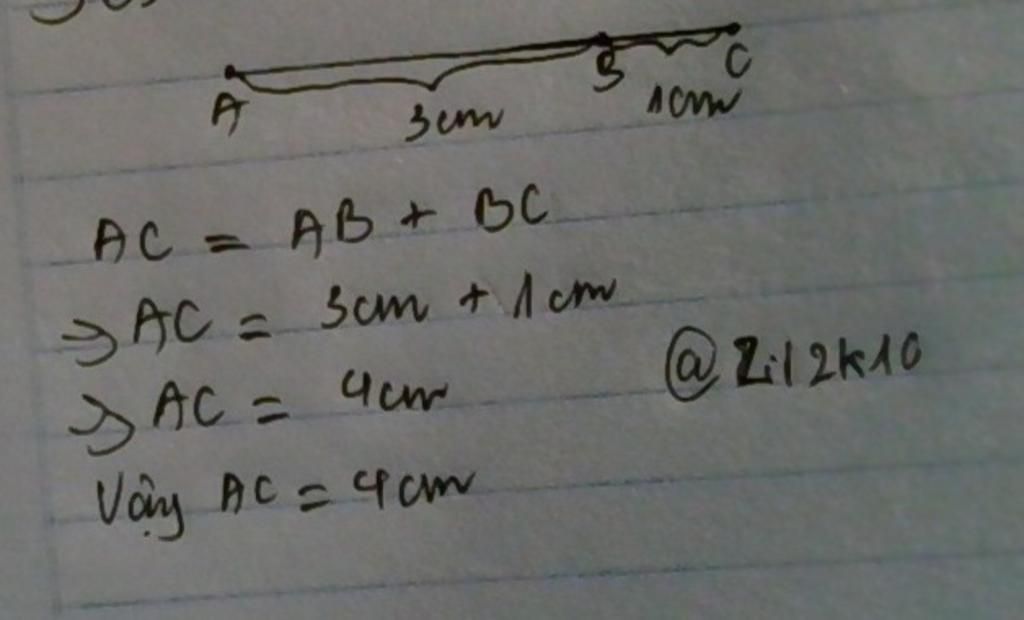 A B C
3cm 1cm
AC = AB + BC
=> AC = 3cm + 1cm
=> AC = 4cm
@Zil2k10
Vậy AC = 4cm